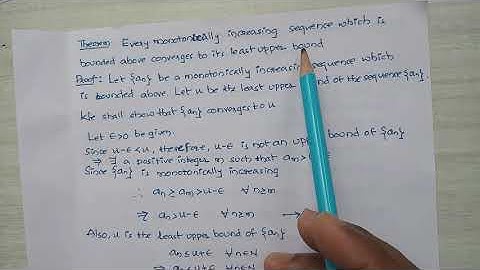 Theorem: Every monotonically increasing sequence which is
bounded above converges to its least upper bound
Proof: Let {an} be a monotonically increasing sequence which
is bounded above. Let u be the least upper bound of the sequence {an}.
We shall show that {an} converges to u
Let ε>0 be given.
Since u-ε<u, therefore, u-ε is not an upper bound of {an}
⇒ ∃ a positive integer m such that am>
Since {an} is monotonically increasing
∴ an ≥ am > u-ε ∀ n≥m
⇒ an > u-ε ∀ n≥m →
Also, u is the least upper bound of {an}
an ≤ u+ε ∀ n∈N
⇒ an ≤ u+ε ∀ n∈N